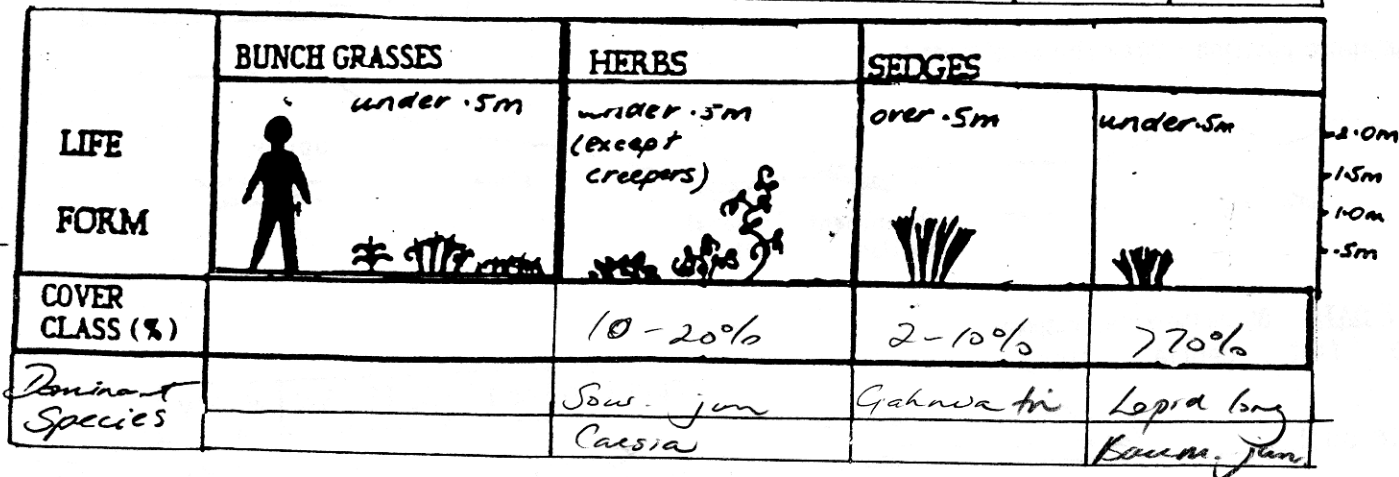 BUNCH GRASSES
HERBS
SEDGES
LIFE
FORM
under .5m
under .5m
(except
creepers)
over .5m
under .5m
2.0m
1.5m
1.0m
.5m
COVER
CLASS (%)
10-20%
2-10%
>70%
Dominant
Species
Sow. jun
Gahnia tri
Lepid long
Caesia
Baum. jun